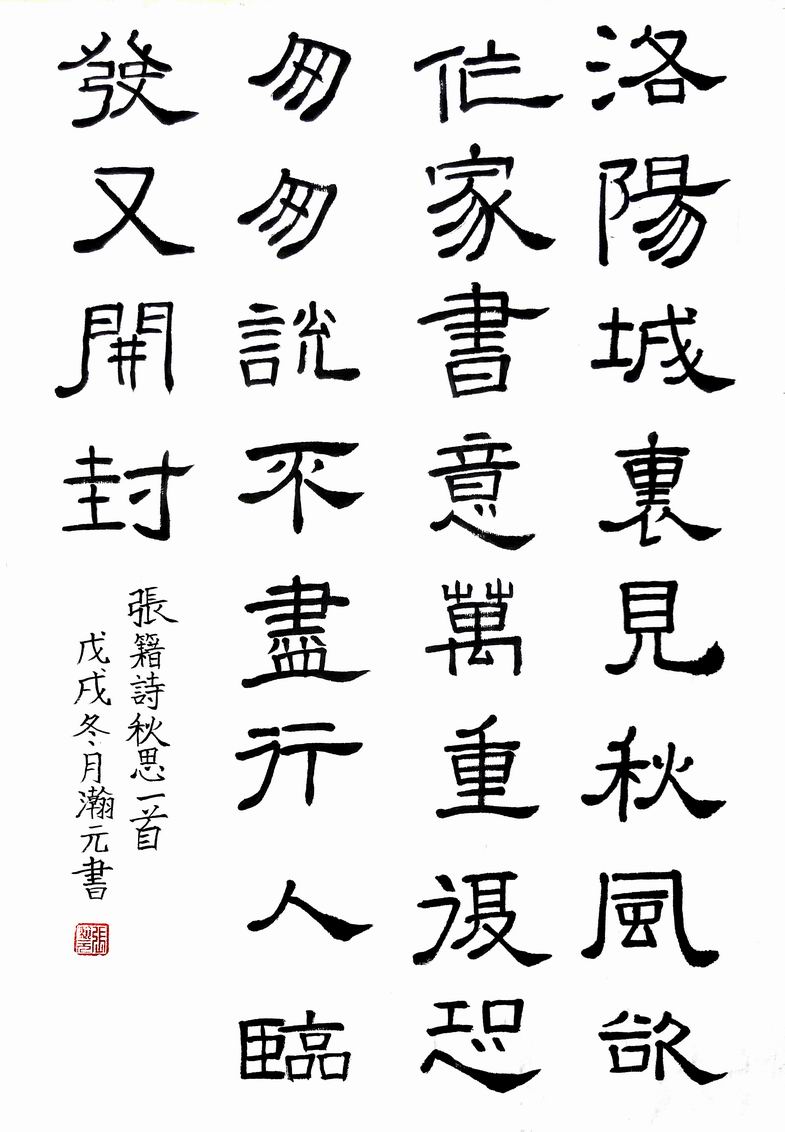 洛陽城裏見秋風欲
作家書意萬重復恐
匆匆説不盡行人臨
發又開封
張籍詩秋思一首
戊戌冬月瀚元書